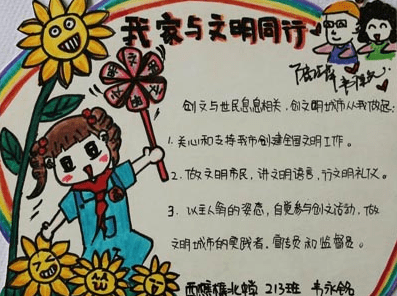 我家与文明同行
创文与世民息息相关,创文明城市从我做起:
1. 关心和支持我市创建全国文明工作。
2. 做文明市民,讲文明语言,行文明礼仪。
3. 以主人翁的姿态,自觉参与创文活动,做
文明城市的实践者,宣传员和监督员。
213班